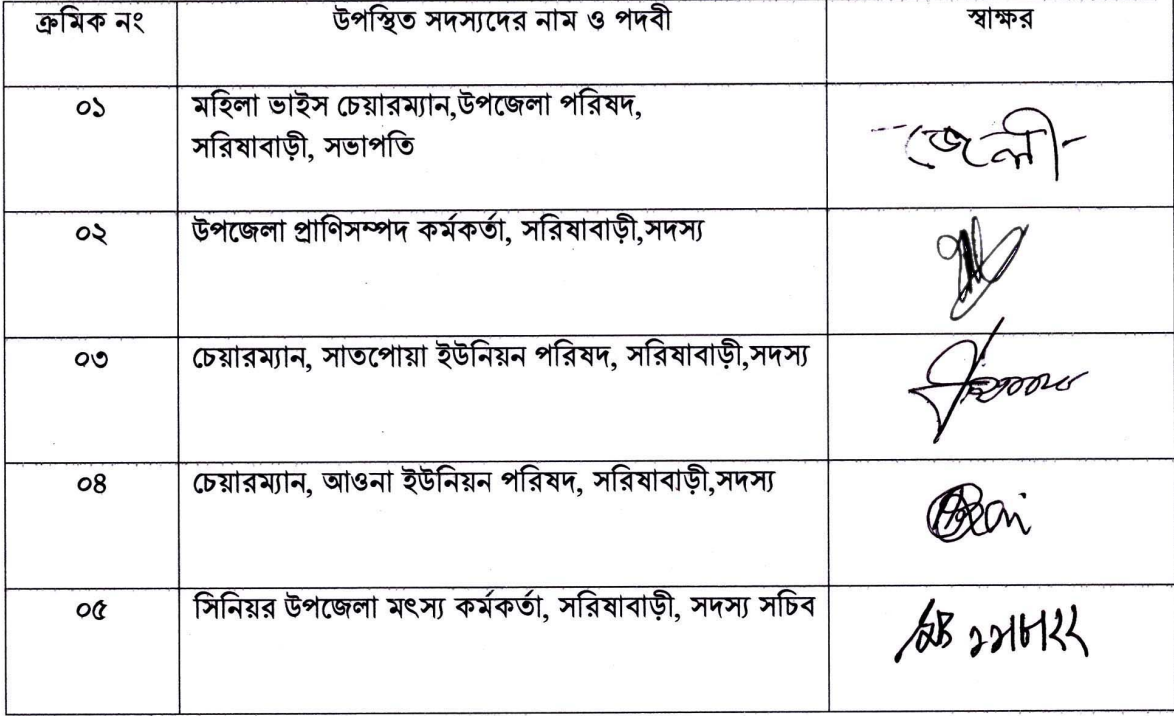 ক্রমিক নং উপস্থিত সদস্যদের নাম ও পদবী স্বাক্ষর
০১ মহিলা ভাইস চেয়ারম্যান,উপজেলা পরিষদ,
সরিষাবাড়ী, সভাপতি
জেলী
০২ উপজেলা প্রাণিসম্পদ কর্মকর্তা, সরিষাবাড়ী,সদস্য
০৩ চেয়ারম্যান, সাতপোয়া ইউনিয়ন পরিষদ, সরিষাবাড়ী,সদস্য
০৪ চেয়ারম্যান, আওনা ইউনিয়ন পরিষদ, সরিষাবাড়ী,সদস্য
০৫ সিনিয়র উপজেলা মৎস্য কর্মকর্তা, সরিষাবাড়ী, সদস্য সচিব